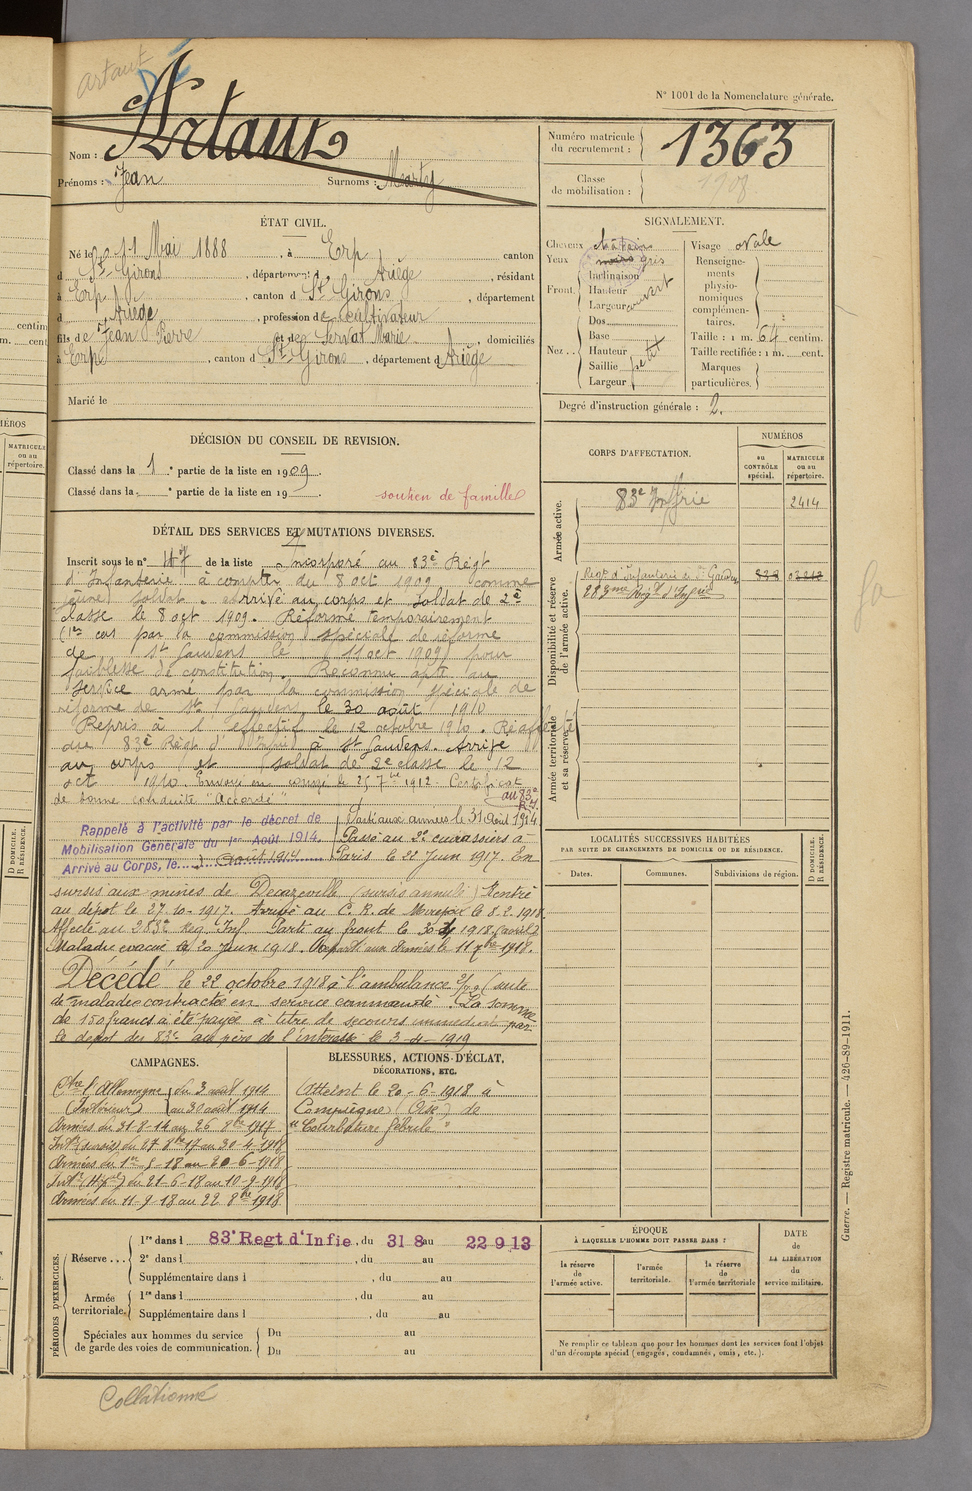 Artaut
D
N° 1001 de la Nomenclature générale.
Nom : Artaut
Prénoms : Jean Surnoms : Marty
Numéro matricule du recrutement : 1363
Classe de mobilisation : 1908
ÉTAT CIVIL.
Né le 11 Mai 1888, à Erp, canton
d St Girons, département d Ariège, résidant
à Erp, canton d St Girons, département
d Ariège, profession d cultivateur
fils de Jean Pierre et de Servat Marie, domiciliés
à Erp, canton d St Girons, département d Ariège
Marié le
SIGNALEMENT.
Cheveux châtain
Yeux gris
Front. Inclinaison
Hauteur
Largeur couvert
Nez .. Dos
Base
Hauteur petit
Saillie
Largeur
Visage ovale
Renseignements physionomiques complémentaires.
Taille : 1 m. 64 centim.
Taille rectifiée : 1 m. cent.
Marques particulières.
Degré d'instruction générale : 2.
DÉCISION DU CONSEIL DE REVISION.
Classé dans la 1 e partie de la liste en 1909.
Classé dans la e partie de la liste en 19
soutien de famille
DÉTAIL DES SERVICES ET MUTATIONS DIVERSES.
Inscrit sous le n° 47 de la liste Incorporé au 83e Régt
d'Infanterie à compter du 8 oct 1909 comme
jeune soldat. Arrivé au corps et soldat de 2e
classe le 8 oct 1909. Réformé temporairement
(1er cas par la commission spéciale de réforme
de St Gaudens le 11 oct 1909) pour
faiblesse de constitution. Reconnu apte au
service armé par la commission spéciale de
réforme de St Gaudens le 30 août 1910
Repris à l'effectif le 12 octobre 1910. Réaffecté
au 83e Régt d'Infrie à St Gaudens. Arrivé
au corps et soldat de 2e classe le 12
oct 1910. Envoyé en congé le 25 7bre 1912. Certificat
de bonne conduite "Accordé"
au 83e R.I.
Rappelé à l'activité par le décret de
Mobilisation Générale du 1er Août 1914.
Arrivé au Corps, le 3 août 1914
Parti aux armées le 31 Août 1914
Passé au 2e cuirassiers à
Paris le 22 Juin 1917. En
sursis aux mines de Decazeville (sursis annulé) Rentré
au dépôt le 27-10-1917. Arrivé au C. R. de Mirepoix le 8.2.1918.
Affecté au 283e Reg. Inf. Parti au front le 30-4 1918 (avril)
Malade évacué le 20 Juin 1918. Reparti aux Armées le 11 7bre 1918.
Décédé le 22 octobre 1918 à l'ambulance (suite
de maladie contractée en service commandé. La somme
de 150 francs a été payée à titre de secours immédiat par
le dépôt des 83e au père de l'intéressé le 3-4-1919
CORPS D'AFFECTATION.
NUMÉROS
au CONTRÔLE spécial.
MATRICULE ou au répertoire.
Armée active.
83e Infrie 2414
Disponibilité et réserve de l'armée active.
Regt d'Infanterie de St Gaudens
283ème Régt d'Infrie
Armée territoriale et sa réserve.
LOCALITÉS SUCCESSIVES HABITÉES
PAR SUITE DE CHANGEMENTS DE DOMICILE OU DE RÉSIDENCE.
Dates. Communes. Subdivisions de région. D DOMICILE. R RÉSIDENCE.
CAMPAGNES.
Ctre l'Allemagne du 3 août 1914
(Intérieur) au 30 août 1914
Armées du 31-8-14 au 26 8bre 1917
Intr (sursis) du 27 8bre 17 au 30-4-1918
Armées du 1er 5-18 au 20-6-1918
Intr (Hpal) du 21-6-18 au 10-9-1918
Armées du 11-9-18 au 22 8bre 1918
BLESSURES, ACTIONS D'ÉCLAT,
DÉCORATIONS, ETC.
Atteint le 20-6-1918 à
Compiègne (Oise) de
"Courbature fébrile"
PÉRIODES D'EXERCICES.
Réserve ... 1re dans l 83e Regt d'Infie, du 31 8 au 22 9 13
2e dans l , du au
Supplémentaire dans l , du au
Armée territoriale. 1re dans l , du au
Supplémentaire dans l , du au
Spéciales aux hommes du service de garde des voies de communication. Du au
Du au
ÉPOQUE
À LAQUELLE L'HOMME DOIT PASSER DANS :
la réserve de l'armée active.
l'armée territoriale.
la réserve de l'armée territoriale
DATE de LA LIBÉRATION du service militaire.
Ne remplir ce tableau que pour les hommes dont les services font l'objet
d'un décompte spécial (engagés, condamnés, omis, etc.).
Guerre. — Registre matricule. — 426-89-1911.
Collationné